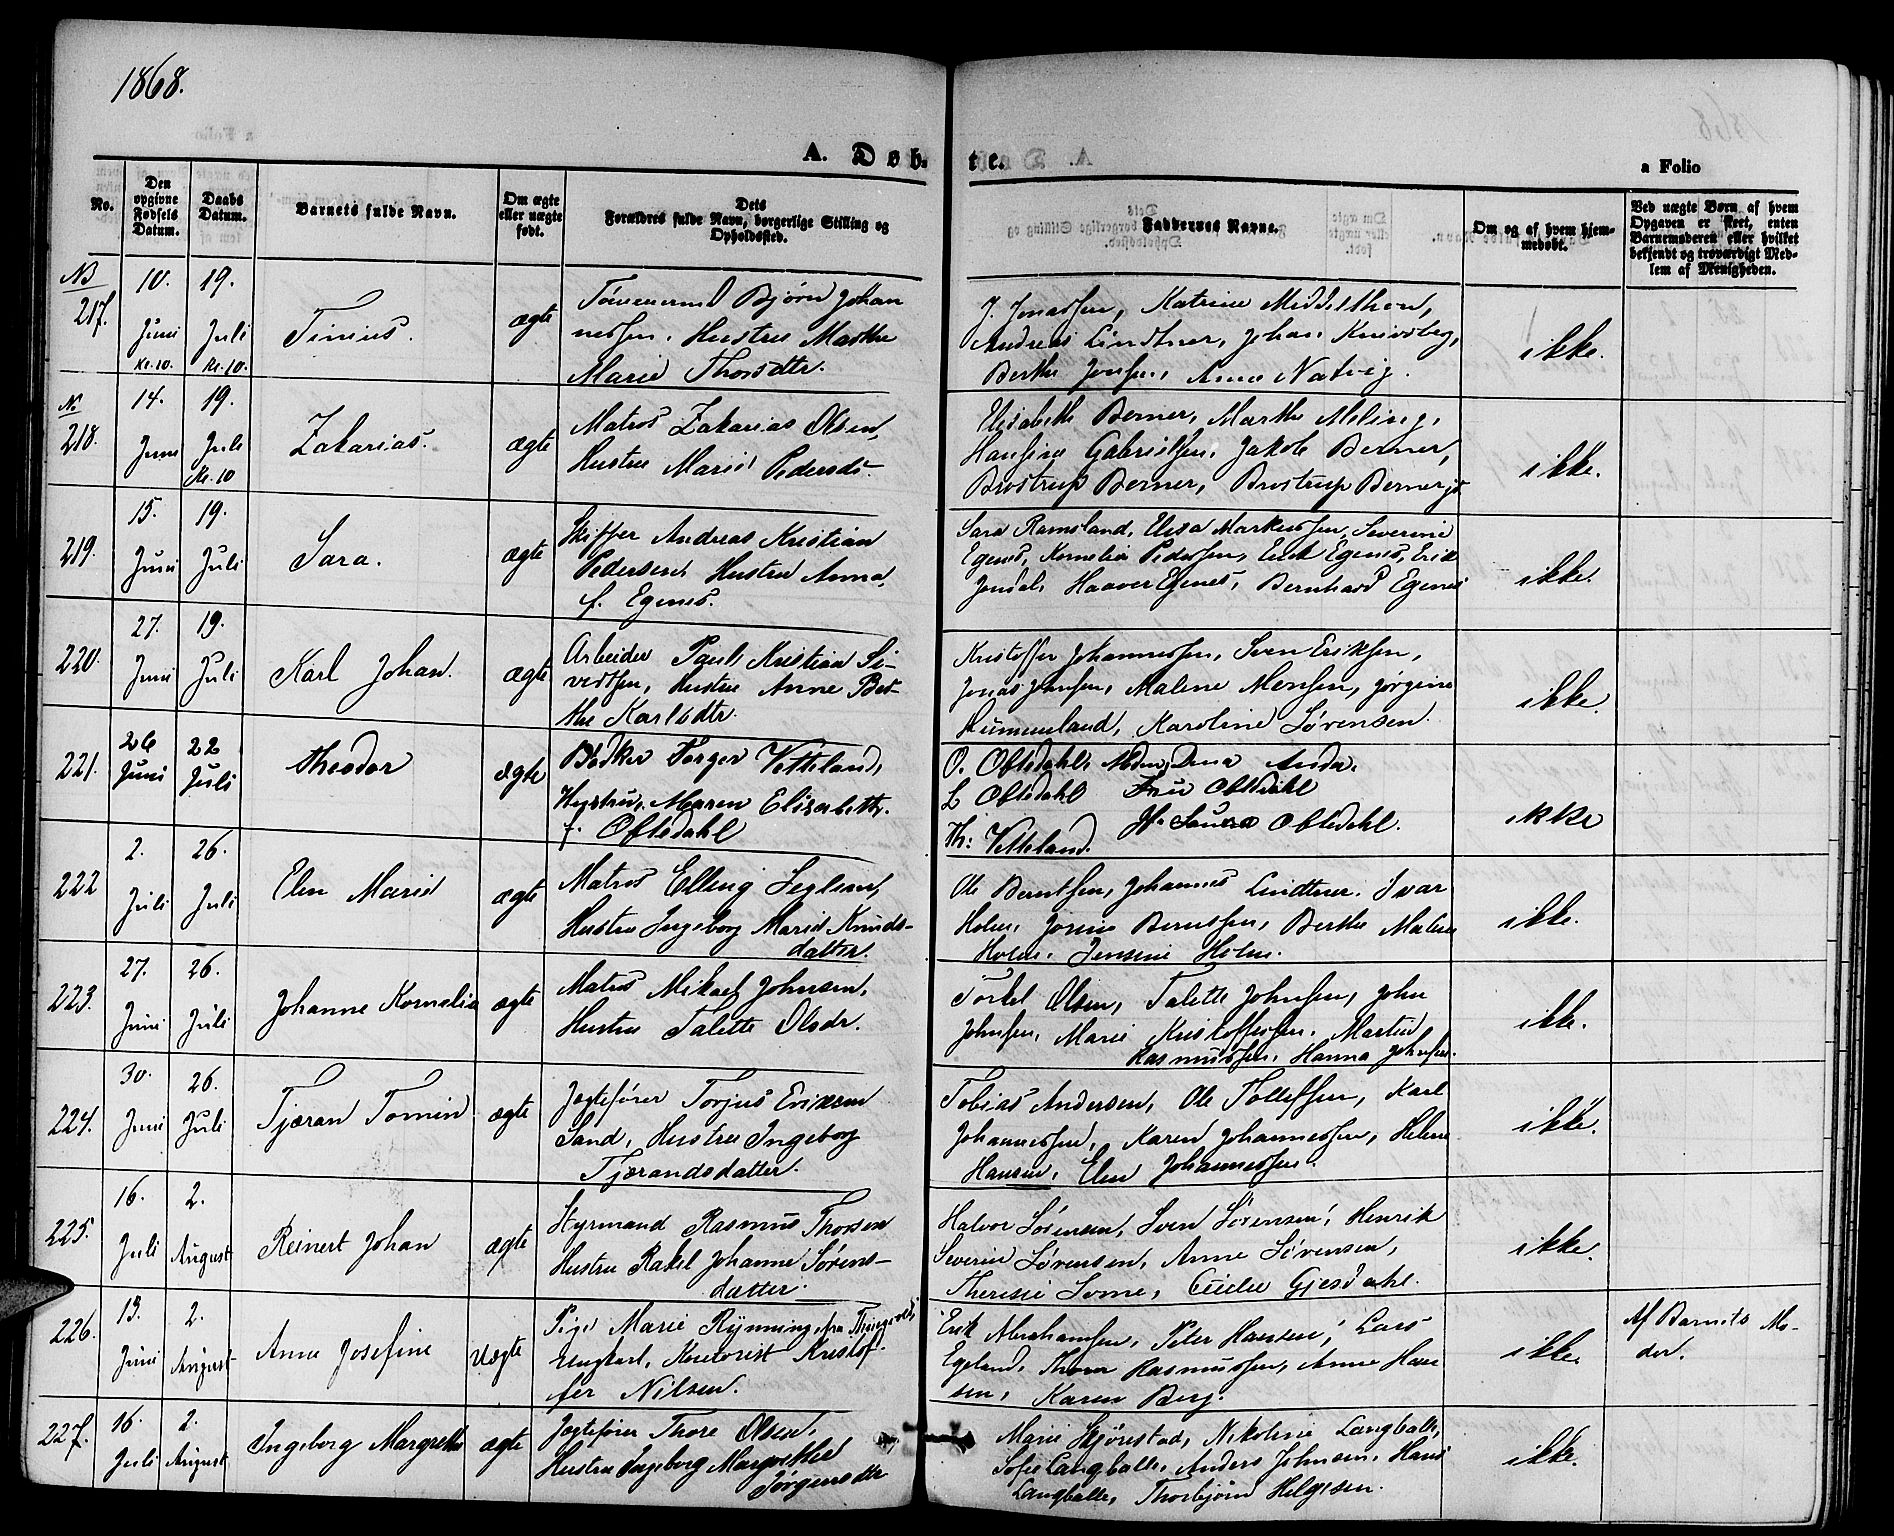 1868.
A. Døb-
te.
a Folio
No.
Den opgivne Fødsels Datum.
Daabs Datum.
Barnets fulde Navn.
Om ægte eller uægte født.
Dets Forældres fulde Navn, borgerlige Stilling og Opholdssted.
Faddernes Navne.
Om og af hvem hjemmedøbt.
Ved uægte Børn af hvem Opgaven er skeet, enten Barnemoderen eller hvilket bekjendt og troværdigt Medlem af Menigheden.
217.
10. Juni Kl. 10.
19. Juli Kl. 10.
Tinius.
ægte
Tømmermd Bjørn Johan
nessen. Hustru Marthe
Marie Thorsdtr.
J. Jonassen, Katrine Middelthon,
Andreas Lindtner, Johan Knivsberg,
Berthe Jonsen, Anna Natvig.
ikke.
218.
14. Juni
19. Juli Kl. 10
Zakarias.
ægte
Matros Zakarias Olsen,
Hustru Marie Pedersd-
Elisabeth Berner, Marthe Meling,
Hansine Gabrielsen, Jakob Berner,
Brostrup Berner, Brostrup Berner jr.
ikke.
219.
15. Juni
19. Juli
Sara.
ægte
Skipper Andreas Kristian
Pedersen, Hustru Anna
f. Egenes.
Sara Ramsland, Elisa Markussen, Severine
Egenes, Kornelia Pedersen, Erik Egenes, Erik
Haaver Egenes, Bernhard Egenes
ikke.
220.
27. Juni
19. Juli
Karl Johan.
ægte
Arbeider Paul Kristian Si-
vertsen, Hustru Anne Ber-
the Karlsdtr.
Kristoffer Johannessen, Sven Eriksen,
Jonas Jansen, Malene Monsen, Jørgine
Hummeland, Karoline Sørensen.
ikke.
221.
26 Juni
22 Juli
Theodor
ægte
Bødker Torger Vetteland,
Hustru, Maren Elisabeth,
f. Oftedahl
O. Oftedahl,
L Oftedahl Fru Oftedahl
Th: Vetteland. Laura Oftedahl.
ikke
222
2. Juli
26. Juli
Elen Marie
ægte
Matros Elling Seglem,
Hustru Ingeborg Marie Knuds-
datter.
Ole Berntsen, Johannes Lindtner. Ivar
Holm, Jorine Berntsen, Berthe Malene
Holm. Jensine Holm.
ikke.
223.
27. Juni
26. Juli
Johanne Kornelia
ægte
Matros Mikael Johnsen,
Hustru Talette Olsdr.
Torkel Olsen, Talette Johnsen, John
Johnsen, Marie Kristoffersen. Martin
Rasmussen, Hanna Johnsen.
ikke.
224.
30. Juni
26. Juli
Tjæran Tomin
ægte
Jægtefører Torjus Eriksen
Sand, Hustru Ingeborg
Tjærandsdatter.
Tobias Andersen, Ole Tollefsen, Karl
Johannessen, Karen Johannessen, Helene
Hansen, Elen Johannessen.
ikke.
225.
16. Juli
2. August
Reinert Johan
ægte
Styrmand Rasmus Thorsen
Hustru Rakel Johanne Sørens-
datter.
Halvor Sørensen, Sven Sørensen, Henrik
Severin Sørensen, Anne Sørensen,
Therese Lome, Cicilie Gjesdahl.
ikke.
226.
13. Juni
2. August
Anna Josefine
uægte
Pige Marie Rynning fra
Ungkarl, Kontorist Kristof-
fer Nilsen.
Erik Abrahamsen, Peter Hansen, Lars
Egeland, Thora Rasmussen, Anne Han
sen, Karen Berg.
ikke.
Af Barnets Mo-
der.
227.
16. Juli
2. August
Ingeborg Margrethe
ægte
Jægtefører Thore Olsen,
Hustru Ingeborg Margrethe
Jørgensdtr
Marie Skjørestad, Nikoline Langballe,
Sofie Langballe, Anders Johnsen. Hans
Langballe, Thorbjørn Helgesen.
ikke.